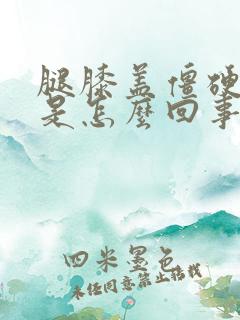 腿膝盖僵硬
是怎麼回事
四米墨色
未经同意禁止搭载